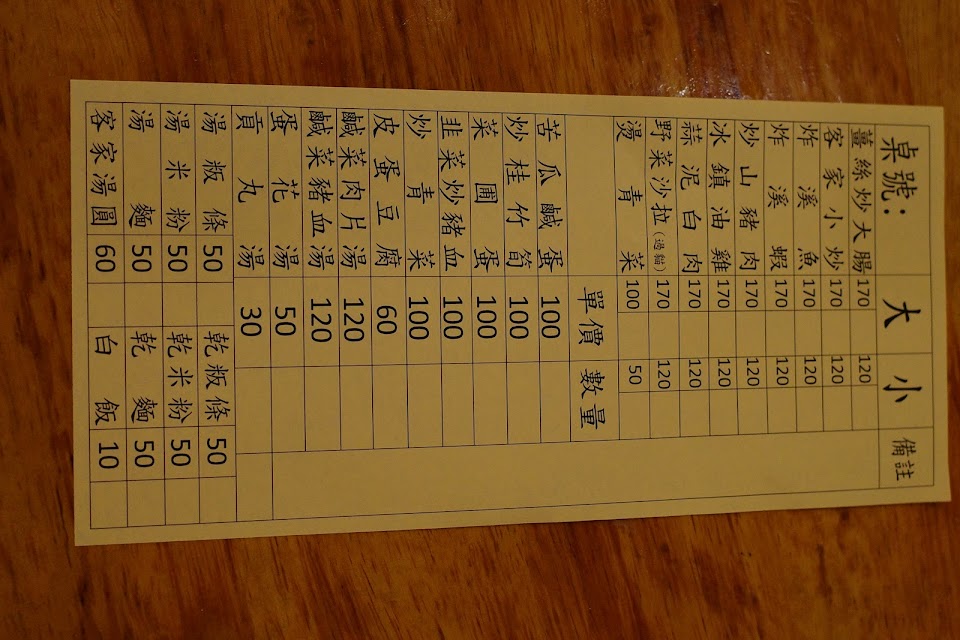 桌號： 大 小 備註
薑絲炒大腸 170 120
客家小炒 170 120
炸溪魚 170 120
炸溪蝦 170 120
炒山豬肉 170 120
冰鎮油雞 170 120
蒜泥白肉 170 120
野菜沙拉(過貓) 170 120
燙青菜 100 50
單價 數量
苦瓜鹹蛋 100
炒桂竹筍 100
菜圃蛋 100
韭菜炒豬血 100
炒青菜 100
皮蛋豆腐 60
鹹菜肉片湯 120
鹹菜豬血湯 120
蛋花湯 50
貢丸湯 30
湯粄條 50 乾粄條 50
湯米粉 50 乾米粉 50
湯麵 50 乾麵 50
客家湯圓 60 白飯 10